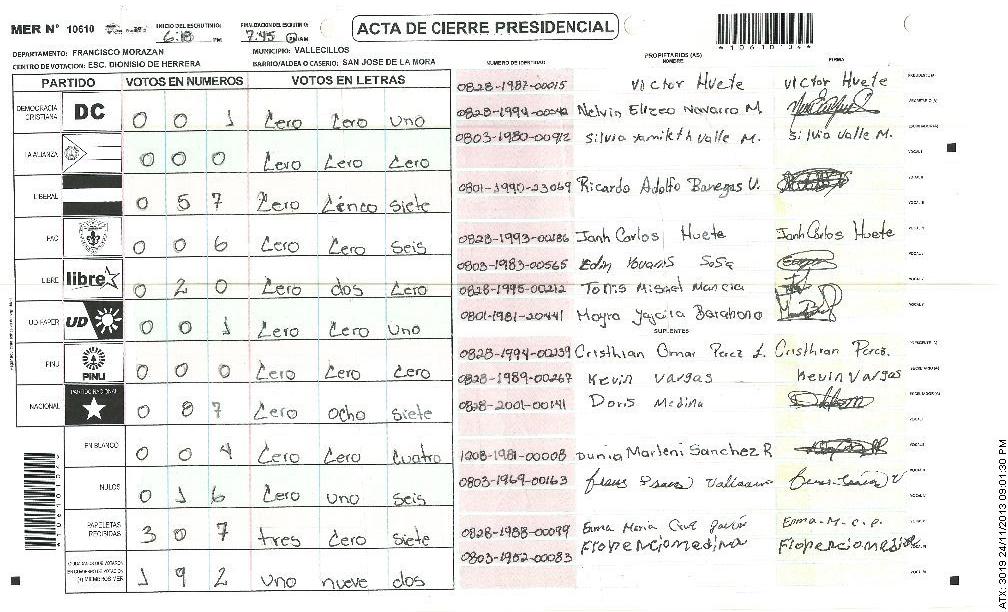 MER Nº 10610 INICIO DEL ESCRUTINIO: 6:18 PM FINALIZACION DEL ESCRUTINIO: 7:45 ACTA DE CIERRE PRESIDENCIAL
DEPARTAMENTO: FRANCISCO MORAZAN MUNICIPIO: VALLECILLOS
CENTRO DE VOTACION: ESC. DIONISIO DE HERRERA BARRIO/ALDEA O CASERIO: SAN JOSE DE LA MORA
PARTIDO VOTOS EN NUMEROS VOTOS EN LETRAS
DEMOCRACIA CRISTIANA DC 0 0 1 Cero Cero uno
LA ALIANZA 0 0 0 Cero Cero Cero
LIBERAL 0 5 7 Cero Cinco siete
PAC 0 0 6 Cero Cero seis
LIBRE libre 0 2 0 Cero dos Cero
UD FAPER UD 0 0 1 Cero Cero uno
PINU PINU 0 0 0 Cero Cero Cero
NACIONAL PARTIDO NACIONAL 0 8 7 Cero ocho siete
EN BLANCO 0 0 4 Cero Cero Cuatro
NULOS 0 1 6 Cero uno seis
PAPELETAS RECIBIDAS 3 0 7 tres Cero siete
1 9 2 uno nueve dos
NUMERO DE IDENTIDAD PROPIETARIOS (AS) NOMBRE FIRMA
0828-1987-00015 Victor Huete victor Huete
Nelvin Eliezo Navarro M.
0803-1980-00912 Silvia Yamileth Valle M. Silvia Valle M.
0801-1990-23069 Ricardo Adolfo Banegas V.
0828-1993-00186 Janh Carlos Huete Janh Carlos Huete
0803-1983-00565 Edin Sosa
0828-1995-00212 Misael Mancia
0801-1981-20441 Mayra Yajaira Barahona
SUPLENTES
0828-1994-00239 Cristhian Omar Perez L. Cristhian Perez.
0828-1989-00267 Kevin Vargas Kevin Vargas
0828-2001-00141 Doris Medina
1208-1981-00008 Dunia Marleni Sanchez R
0803-1969-00163
0828-1988-00099 Erma Maria Cruz Erma-M-C-P.
0803-1952-00083 Florenciomedina Florenciomedina
*10610134*
ATX 3019 24/11/2013 09:01:30 PM